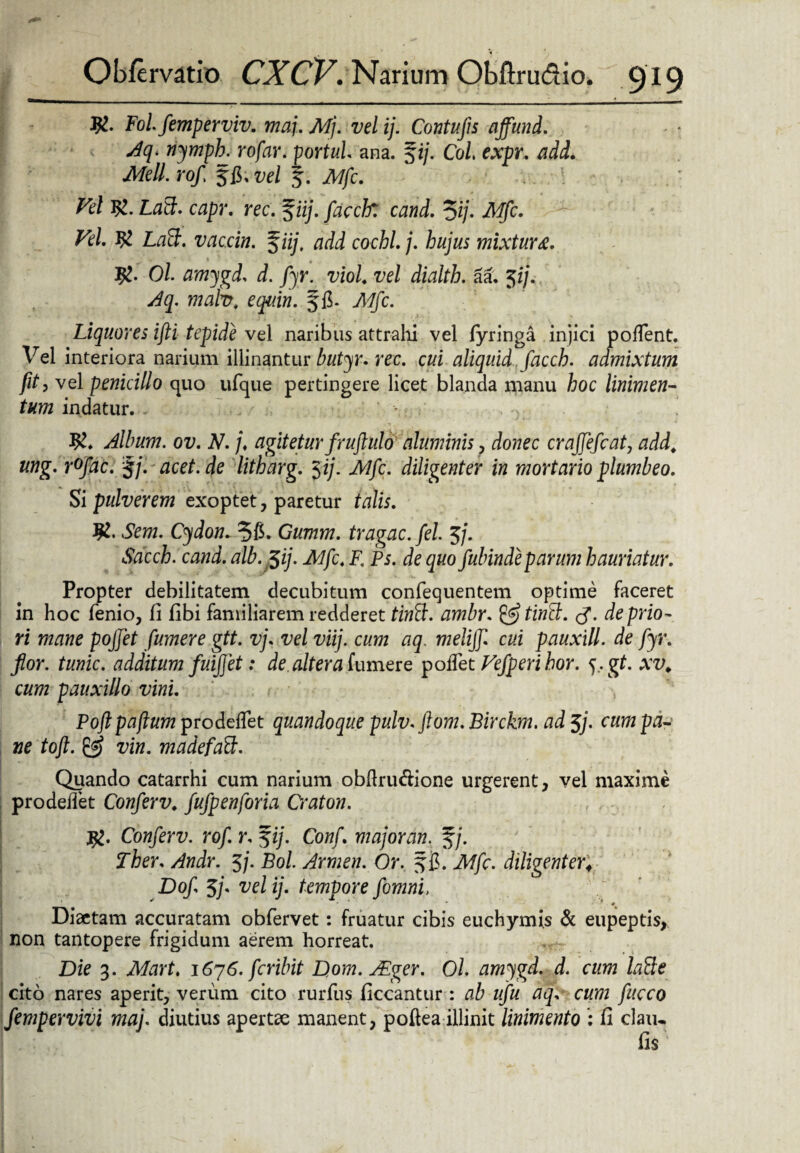 Obſervatio CXCV. Narium Obſtructio. 919
℞. Fol. ſemperviv. maj. Mj. vel ij. Contuſis affund.
Aq. nymph. roſar. portul. ana. ℥ij. Col. expr. add.
Mell. roſ. ℥ß. vel ℥. Mſc.
Vel ℞. Lact. capr. rec. ℥iij. ſacch. cand. ʒij. Mſc.
Vel. ℞ Lact. vaccin. ℥iij. add cochl. j. hujus mixturæ.
℞. Ol. amygd. d. ſyr. viol. vel dialth. āā. ʒij.
Aq. malv. equin. ℥ß. Mſc.
Liquores iſti tepidè vel naribus attrahi vel ſyringâ injici poſſent.
Vel interiora narium illinantur butyr. rec. cui aliquid ſacch. admixtum
ſit, vel penicillo quo uſque pertingere licet blanda manu hoc linimen-
tum indatur.
℞. Album. ov. N. j. agitetur fruſtulo aluminis, donec craſſeſcat, add.
ung. roſac. ℥j. acet. de litharg. ʒij. Mſc. diligenter in mortario plumbeo.
Si pulverem exoptet, paretur talis.
℞. Sem. Cydon. ʒß. Gumm. tragac. ſel. ʒj.
Sacch. cand. alb. ʒij. Mſc. F. Ps. de quo ſubinde parum hauriatur.
Propter debilitatem decubitum conſequentem optimè faceret
in hoc ſenio, ſi ſibi familiarem redderet tinct. ambr. & tinct. ♂. de prio-
ri mane poſſet ſumere gtt. vj. vel viij. cum aq. meliſſ. cui pauxill. de ſyr.
flor. tunic. additum fuiſſet: de altera ſumere poſſet Veſperi hor. 5. gt. xv.
cum pauxillo vini.
Poſt paſtum prodeſſet quandoque pulv. ſtom. Birckm. ad ʒj. cum pa-
ne toſt. & vin. madefact.
Quando catarrhi cum narium obſtructione urgerent, vel maximè
prodeſſet Conſerv. ſuſpenſoria Craton.
℞. Conſerv. roſ. r. ℥ij. Conſ. majoran. ℥j.
Ther. Andr. ʒj. Bol. Armen. Or. ℥ß. Mſc. diligenter.
Doſ. ʒj. vel ij. tempore ſomni.
Diætam accuratam obſervet: fruatur cibis euchymis & eupeptis,
non tantopere frigidum aërem horreat.
Die 3. Mart. 1676. ſcribit Dom. Æger. Ol. amygd. d. cum lacte
citò nares aperit, verùm cito rurſus ſiccantur: ab uſu aq. cum ſucco
ſempervivi maj. diutius apertæ manent, poſtea illinit linimento: ſi clau-
ſis